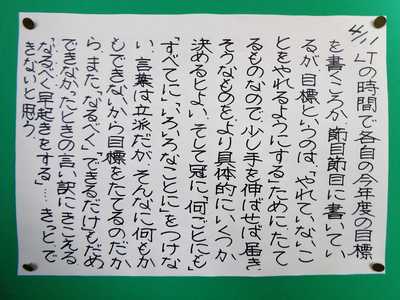 4/11 LTの時間で各自の今年度の目標
を書くころか、節目節目に書いてい
るが目標というのは、「やれていないこ
とをやれるようにする」ために、たて
るものなので、少し手を伸ばせば届き
そうなものをより具体的にいくつか
決めるとよい。そして冠に「何ごとにも」
「すべてに」「いろいろなことに」をつけな
い。言葉は立派だが、そんなに何もか
もできないから目標をたてるのだか
ら。また、「なるべく」「できるだけ」もだめ
できなかったときの言い訳にきこえる
「なるべく早起きをする」…。きっとで
きないと思う。